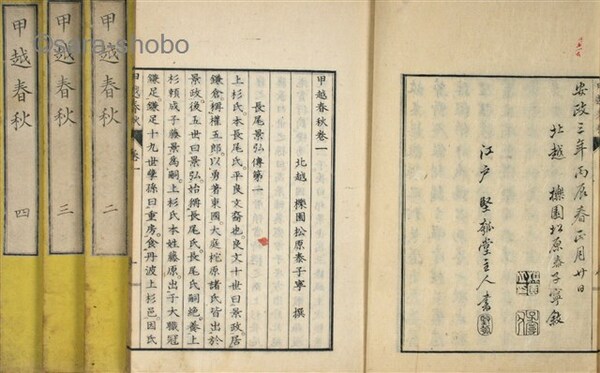 Osara shobo
安政三年丙辰春正月廿日
北越 櫟園松原泰子寧敍
江戸 堅瓠堂主人書
甲越春秋卷一
北越 櫟園松原泰子寧 撰
長尾景弘傳第一
上杉氏本長尾氏平良文裔也良文十世曰景政居
鎌倉稱權五郎以勇著東國大庭梶原諸氏皆出於
景政後五世曰景弘始稱長尾氏長尾氏嗣絶養上
杉賴成子藤景爲嗣上杉氏本姓藤原出于大職冠
鎌足鎌足十九世孽孫曰重房食丹波上杉邑因氏
甲越春秋 卷一
甲越春秋 二
甲越春秋 三
甲越春秋 四